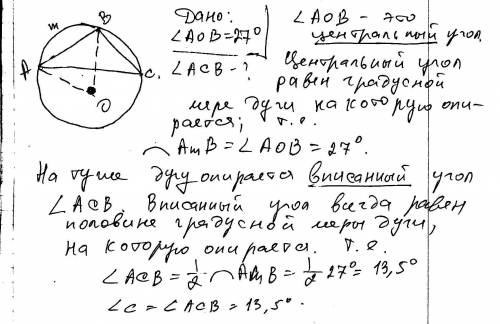 Дано:
∠AOB = 27°
∠ACB - ?
m
A
B
C.
O
∠AOB - это
центральный угол.
Центральный угол
равен градусной
мере дуги на которую опи-
рается; т.е.
⌒AmB = ∠AOB = 27°.
На ту же дугу опирается вписанный угол
∠ACB. Вписанный угол всегда равен
половине градусной меры дуги,
на которую опирается. т.е.
∠ACB = 1/2 ⌒AmB = 1/2 27° = 13,5°
∠C = ∠ACB = 13,5°.